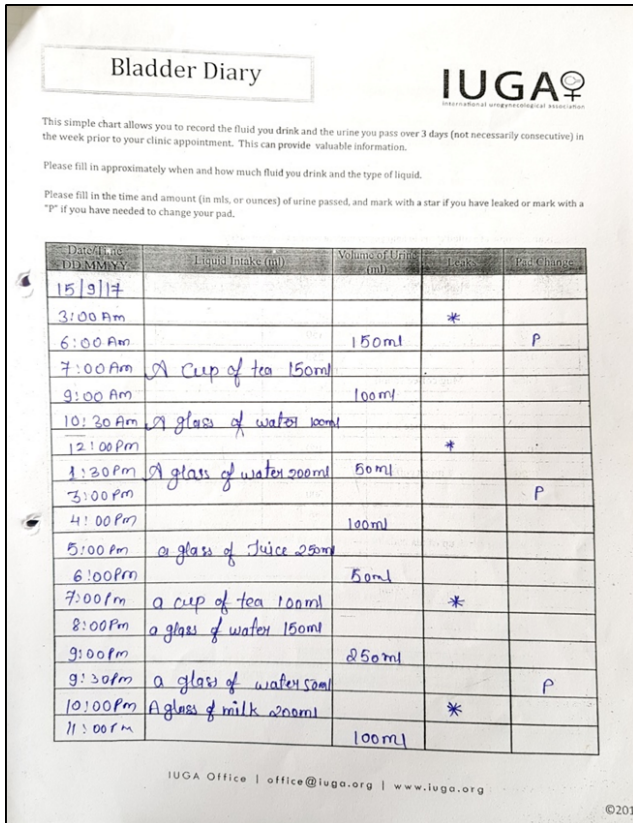 Bladder Diary
IUGA
international urogynecological association
This simple chart allows you to record the fluid you drink and the urine you pass over 3 days (not necessarily consecutive) in
the week prior to your clinic appointment. This can provide valuable information.
Please fill in approximately when and how much fluid you drink and the type of liquid.
Please fill in the time and amount (in mls, or ounces) of urine passed, and mark with a star if you have leaked or mark with a
"P" if you have needed to change your pad.
Date/Time DD/MM/YY Liquid Intake (ml) Volume of Urine (ml) Leak Pad Change
15/9/17
3:00 Am *
6:00 Am 150ml P
7:00 Am A Cup of tea 150ml
9:00 Am 100ml
10:30 Am A glass of water 100ml
12:00 Pm *
1:30 Pm A glass of water 200ml 50ml
3:00 Pm P
4:00 Pm 100ml
5:00 Pm a glass of Juice 250ml
6:00 Pm 50ml
7:00 Pm a cup of tea 100ml *
8:00 Pm a glass of water 150ml
9:00 Pm 250ml
9:30 Pm a glass of water 50ml P
10:00 Pm A glass of milk 200ml *
11:00 Pm 100ml
IUGA Office | office@iuga.org | www.iuga.org
©201